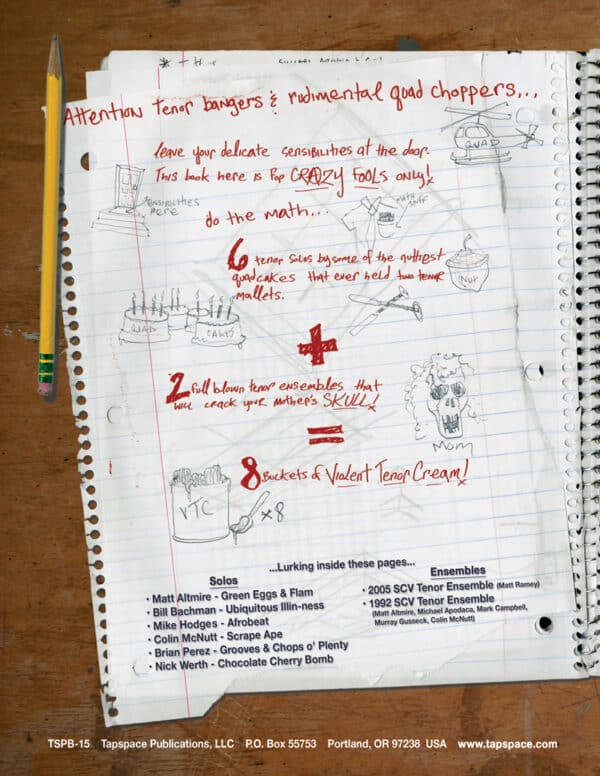 Attention Tenor bangers & rudimental quad choppers...
leave your delicate sensibilities at the door.
This book here is for CRAZY FOOLS only!
QUAD
SENSIBILITIES
HERE
do the math...
6 tenor solos by some of the nuttiest
quadcakes that ever held two tenor
mallets.
NUT
QUAD
CAKES
+
2 full blown tenor ensembles that
will crack your mother's SKULL!
Mom
=
8 Buckets of Violent Tenor Cream!
VTC
x8
...Lurking inside these pages...
Solos
• Matt Altmire - Green Eggs & Flam
• Bill Bachman - Ubiquitous Illin-ness
• Mike Hodges - Afrobeat
• Colin McNutt - Scrape Ape
• Brian Perez - Grooves & Chops o' Plenty
• Nick Werth - Chocolate Cherry Bomb
Ensembles
• 2005 SCV Tenor Ensemble (Matt Ramey)
• 1992 SCV Tenor Ensemble
(Matt Altmire, Michael Apodaca, Mark Campbell,
Murray Gusseck, Colin McNutt)
TSPB-15 Tapspace Publications, LLC P.O. Box 55753 Portland, OR 97238 USA www.tapspace.com